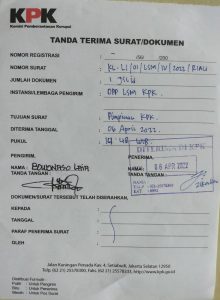 KPK
Komisi Pemberantasan Korupsi
TANDA TERIMA SURAT/DOKUMEN
NOMOR REGISTRASI :
NOMOR SURAT : /LSM/IV/2022/RIAU
JUMLAH DOKUMEN : 1
INSTANSI/LEMBAGA PENGIRIM : DPP LSM KPK.
TUJUAN SURAT : Pimpinan KPK.
DITERIMA TANGGAL : 06 April 2022.
PUKUL : 14.48 WIB.
PENGIRIM, PENERIMA,
DITERIMA DI KPK
NAMA : LAIA NAMA :
06 APR 2022
TANDA TANGAN : TANDA TANGAN :
DOKUMEN/SURAT TERSEBUT TELAH DISERAHKAN,
KEPADA :
TANGGAL :
PARAF :
OLEH :
Jalan Kuningan Persada Kav. 4, Setiabudi, Jakarta Selatan 12950
Telp. (62 21) 25578300, Faks. (62 21) http://www.kpk.go.id
Distribusi Formulir :
Putih : Untuk Pengirim
Biru : Untuk Penerima